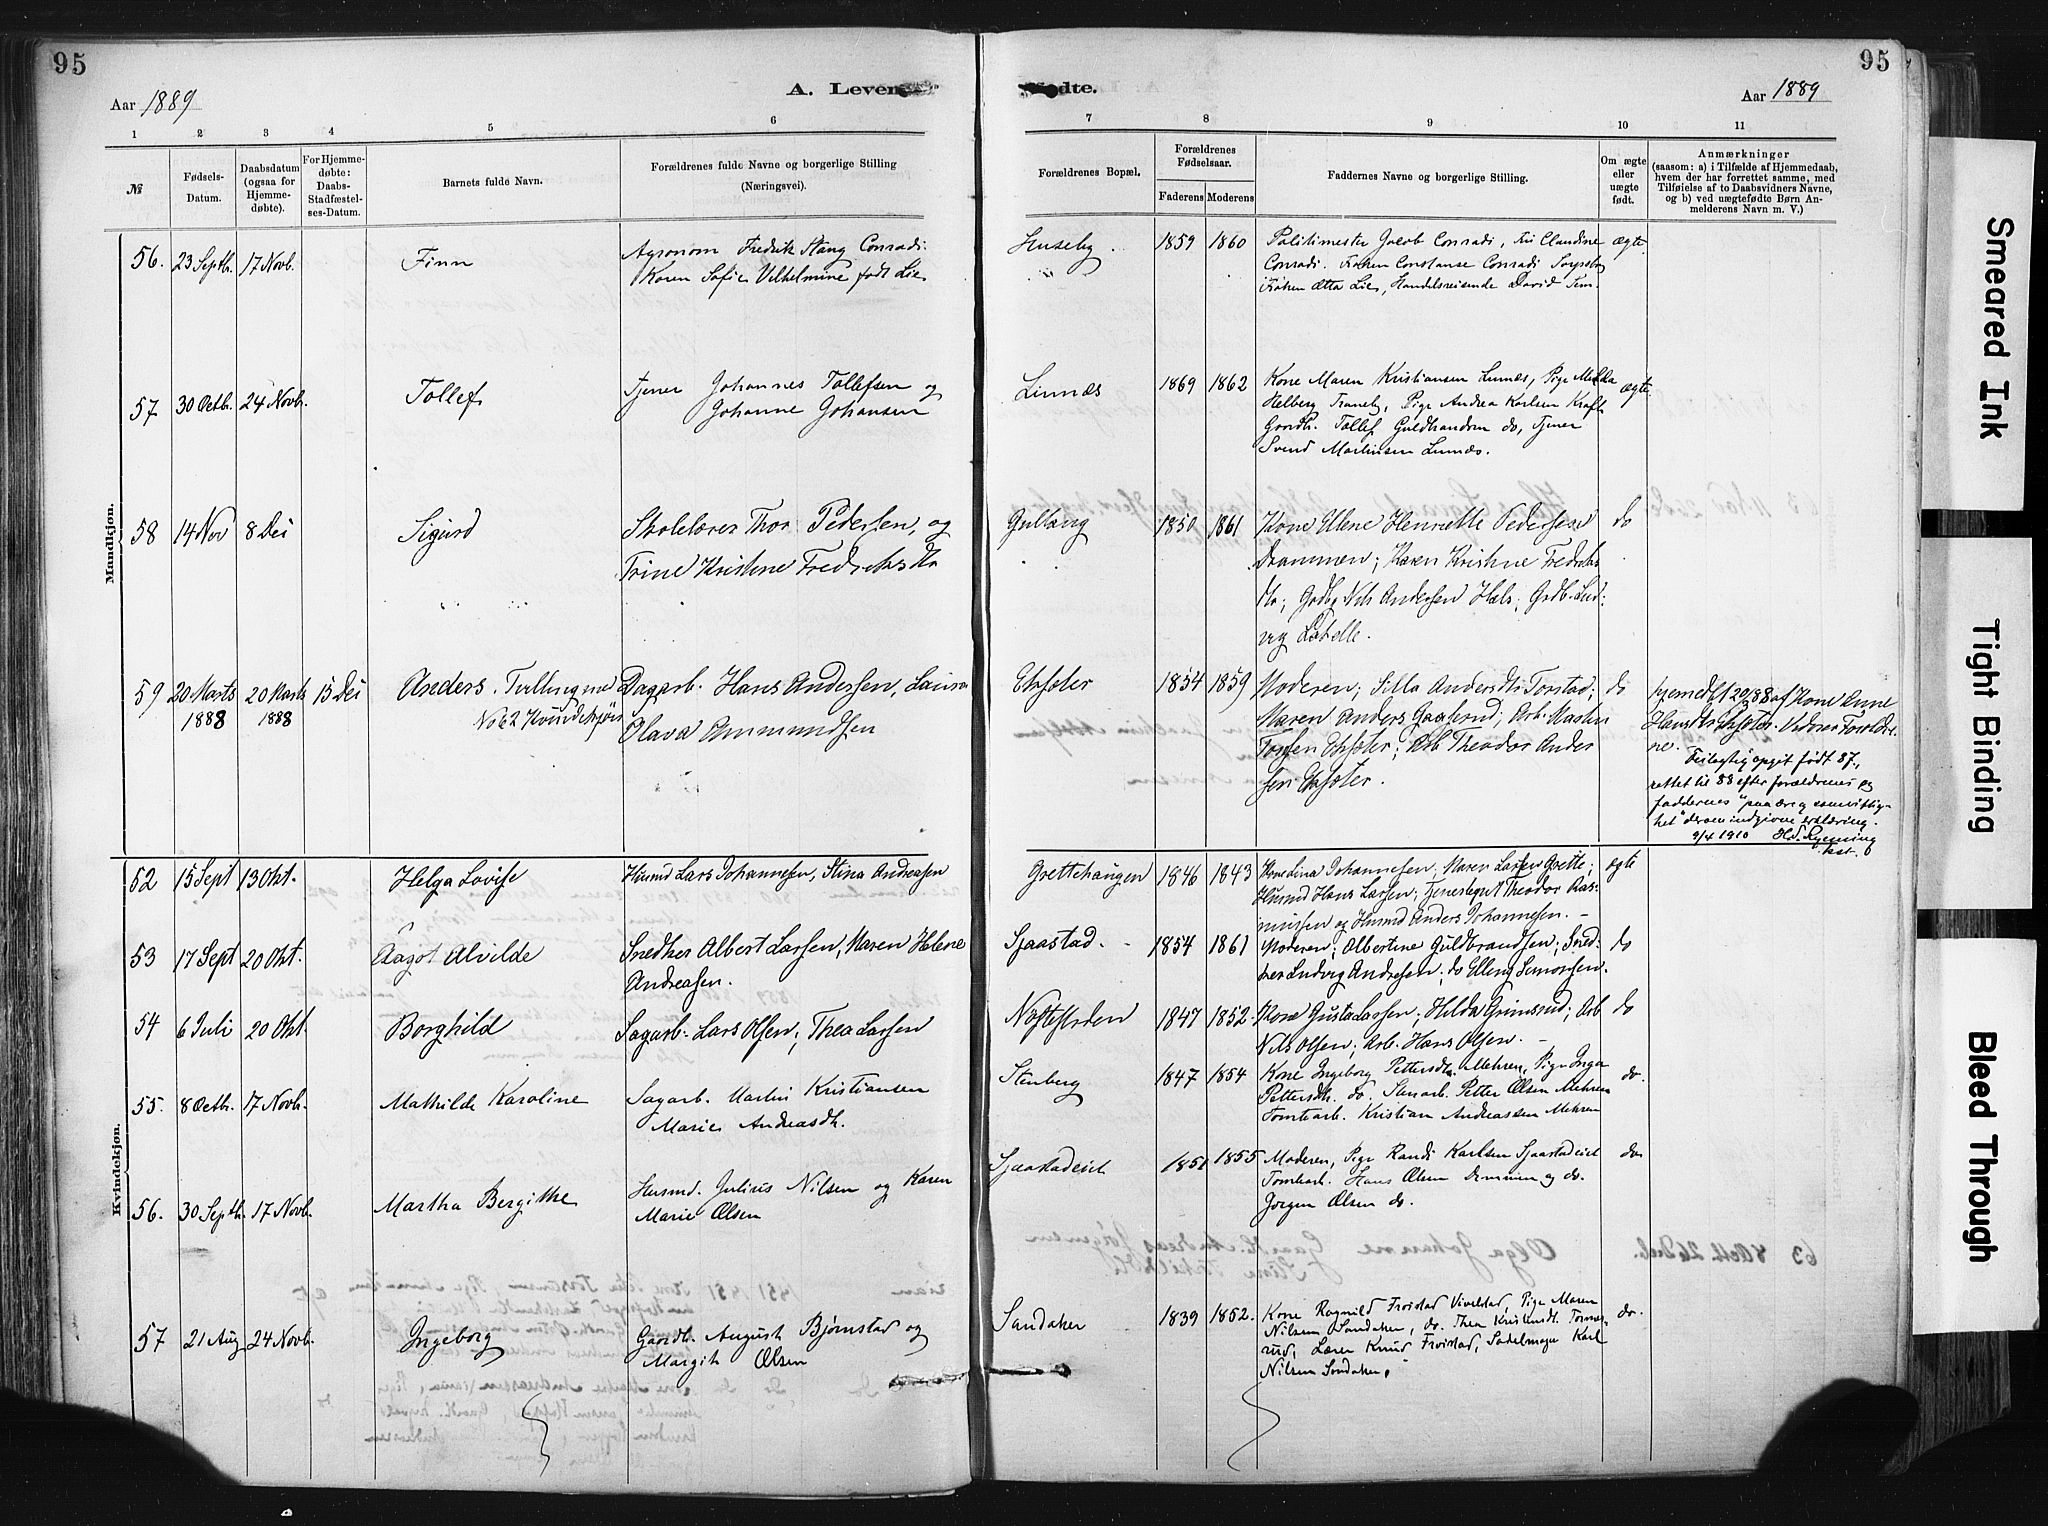 95
Aar 1889
A. Leven
1 2 3 4 5 6
№
Fødsels-Datum.
Daabsdatum (ogsaa for Hjemme-døbte).
For Hjemme-døbte: Daabs-Stadfæstel-ses-Datum.
Barnets fulde Navn.
Forældrenes fulde Navne og borgerlige Stilling
(Næringsvei).
95
dte.
Aar 1889
7 8 9 10 11
Forældrenes Bopæl.
Forældrenes Fødselsaar.
Faderens Moderens
Faddernes Navne og borgerlige Stilling.
Om ægte eller uægte født.
Anmærkninger
(saasom: a) i Tilfælde af Hjemmedaab,
hvem der har forrettet samme, med
Tilføielse af to Daabsvidners Navne,
og b) ved uægtefødte Børn An-
melderens Navn m. V.)
Mandkjøn.
56. 23 Septb. 17 Novb. Finn
Agronom Fredrik Stang Conradi
Karen Sofie Vilhelmine født Lie
Huseby 1859 1860
Politimester Jacob Conradi, Fru Claudine ægte
Conradi. Frøken Constanse Conradi
Frøken Lie, Handelsreisende David
57 30 Octb. 24 Novb. Tollef
Tjener Johannes Tollefsen og
Johanne Johansen
Linnæs 1869 1862
Kone Maren Kristiansen Linnæs, Pige ægte
Helberg Traneby, Pige Andrea Karlsen Kraft
Gaardb. Tollef do, Tjener
Svend Martinsen Linnæs.
58 14 Nov 8 Dei Sigurd
Skolelærer Thor Pedersen, og
Trine Kristine
Gullaug 1850 1861
Kone Ellene Henriette Pedersen do
Drammen; Karen Kristine
Nils Andersen
vig Labelle.
59 20 Marts 1888 20 Marts 1888 15 Dei
Anders. Tvilling med
No 62 Kvindekjøn
Dagarb. Hans Andersen, Laura
Olava Ammundsen
1854 1859
Moderen; Silla Andersdt Torstad; do
Maren Anders; Arb. Martin
Arb Theodor Ander
sen
hjemedbt 20/3 88 af Kone Anne
Hansdt. Vidner Foreldre
ne.
Feilagtig opgit født 87,
rettet til 88 efter forældrenes og
faddernes "paa ære og samvittig-
het" derom indgivne erklæring.
9/4 1910
Kvindekjøn.
52 15 Sept 13 Okt. Helga Lovise
Husmd Lars Johannesen, Stina Andreasen
Grettehaugen 1846 1843
Johannesen; Maren Larsen Grette; ægte
Husmd Hans Larsen; Theodor Ras-
mussen og Husmd Anders Johannesen. –
53 17 Sept 20 Okt. Aagot Alvilde
Snedker Albert Larsen, Maren Helene
Andreasen.
Sjaastad. 1854 1861
Moderen; Albertine Guldbrandsen; Sned- do
ker Ludvig Andresen; do Elling Simonsen.
54 6 Juli 20 Okt Borghild
Sagarb. Lars Olsen; Thea Larsen
1847 1852.
Kone Gusta Larsen; Hilda Grimsrud; Arb do
Nils Olsen; Arb. Hans Olsen. –
55. 8 Octb. 17 Novb. Mathilde Karoline
Sagarb. Martin Kristiansen
Marie Andreasdt.
Stenberg 1847 1854
Kone Ingeborg Pettersdt. Mehren, Pige Inga do.
Pettersdt. do. Petter Olsen Mehren
Tomtearb. Kristian Andreassen Mehren
56. 30 Septb. 17 Novb. Martha Bergitte
Husmd. Julius Nilsen og Karen
Marie Olsen
Sjaastadeiet 1851 1855
Moderen, Pige Randi Karlsen Sjaastadeiet do
Tomtearb. Hans Olsen og do.
Jørgen Olsen do.
57 21 Aug. 24 Novb. Ingeborg
Gaardb. August Bjørnstad og
Margit Olsen
Sandaker 1839 1852.
Kone Ragnild Frøistad Vivelstad, Pige Maren do.
Nilsen Sandaker, do. Thea
rud, Lærer Knud Frøistad, Sadelmager Karl
Nilsen Sandaker,
Smeared Ink
Tight Binding
Bleed Through